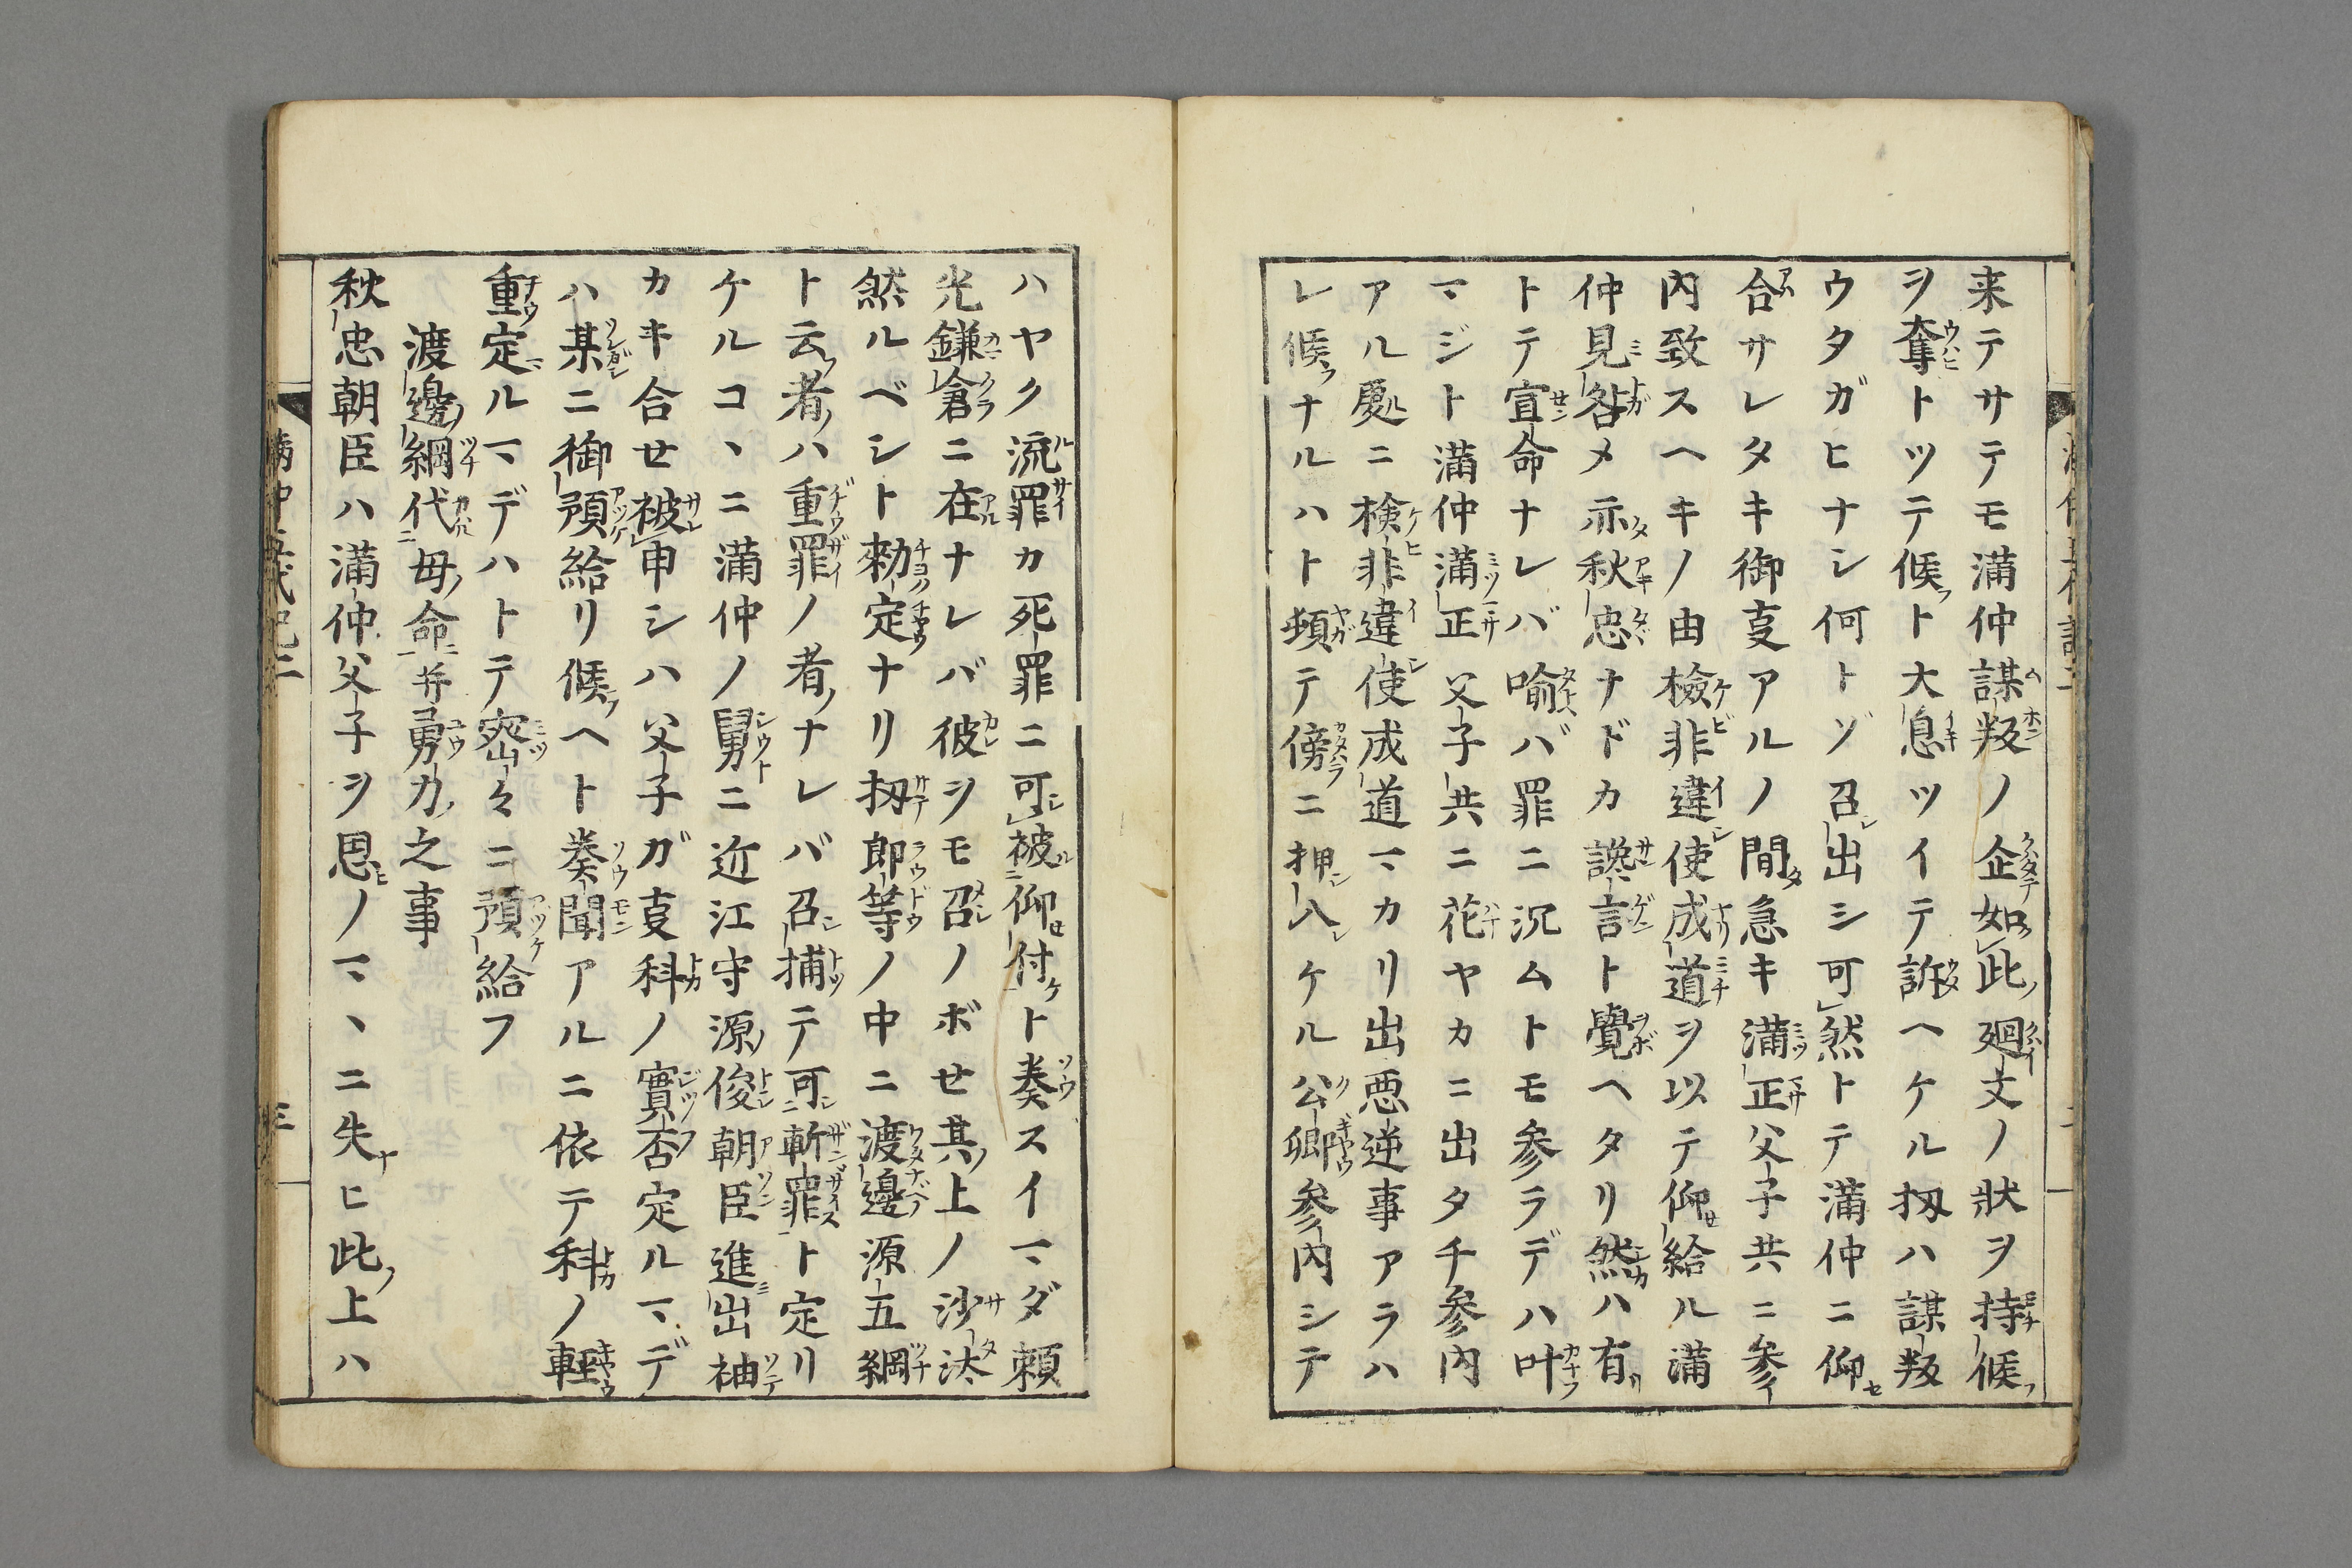 来テサテモ満仲謀叛ノ企如此廻文ノ狀ヲ持候
ヲ奪トツテ候ト大息ツイテ訴ヘケル扨ハ謀叛
ウタガヒナシ何トゾ召出シ可然トテ満仲ニ仰
合サレタキ御叓アルノ間急キ満正父子共ニ參
内致スヘキノ由檢非違使成道ヲ以テ仰給ル満
仲見咎メ亦秋忠ナドカ讒言ト覺ヘタリ然ハ有
トテ宣命ナレバ喩バ罪ニ沉ムトモ參ラデハ叶
マジト満仲満正父子共ニ花ヤカニ出タチ參内
アル處ニ検非違使成道マカリ出悪逆事アラハ
レ候ナルハト頓テ傍ニ押入ケル公卿參内シテ
ハヤク流罪カ死罪ニ可被仰付ト奏スイマダ頼
光鎌倉ニ在ナレバ彼ヲモ召ノボせ其上ノ沙汰
然ルベシト勅定ナリ扨郎等ノ中ニ渡邊源五綱
ト云者ハ重罪ノ者ナレバ召捕テ可斬罪ト定リ
ケルコヽニ満仲ノ舅ニ近江守源俊朝臣進出袖
カキ合せ被申シハ父子ガ叓科ノ實否定ルマデ
ハ某ニ御預給リ候ヘト奏聞アルニ依テ科ノ軽
重定ルマデハトテ密々ニ預給フ
渡邊綱代母命并勇力之事
秋忠朝臣ハ満仲父子ヲ思ノマヽニ失ヒ此上ハ
三